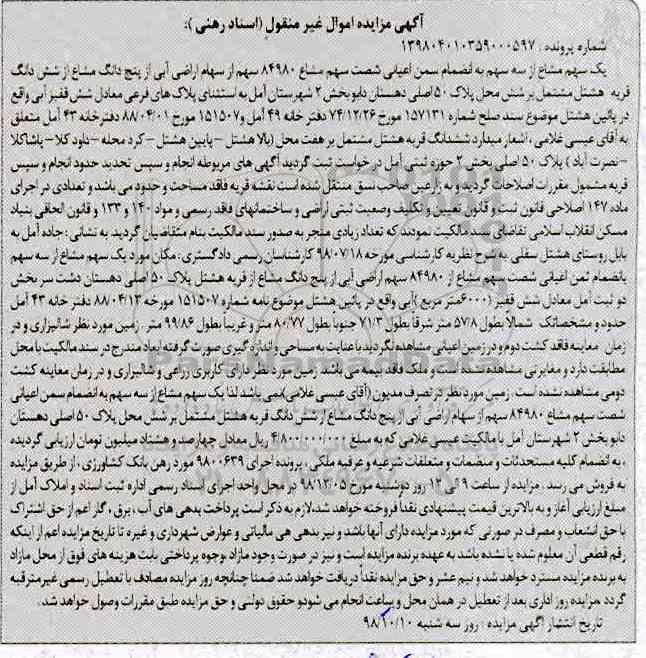 آگهی مزایده اموال غیر منقول (اسناد رهنی ):
شماره پرونده : ۱۳۹۸۰۴۰۱۰۳۵۹۰۰۰۵۹۷
یک سهم مشاع از سه سهم به انضمام سمن اعیانی شصت سهم مشاع ۸۴۹۸۰ سهم از سهام اراضی آبی از پنج دانگ مشاع از شش دانگ
قریه هشتل مشتمل بر شش محل پلاک ۵۰ اصلی دهستان دابو بخش ۲ شهرستان آمل به استثنای پلاک های فرعی معادل شش قفیز آبی واقع
در پائین هشتل موضوع سند صلح شماره ۱۵۷۱۳۱ مورخ ۷۴/۱۲/۲۶ دفتر خانه ۴۹ آمل و ۱۵۱۵۰۷ مورخ ۸۸/۰۴/۰۱ دفترخانه ۴۳ آمل متعلق
به آقای عیسی غلامی ، اشعار میدارد ششدانگ قریه هشتل مشتمل بر هفت محل (بالا هشتل – پایین هشتل – کرد محله – داود کلا – پاشاکلا
– نصرت آباد ) پلاک ۵۰ اصلی بخش ۲ حوزه ثبتی آمل در خواست ثبت گردید آگهی های مربوطه انجام و سپس تحدید حدود انجام و سپس
قریه مشمول مقررات اصلاحات گردید و به زارعین صاحب نسق منتقل شده است نقشه قریه فاقد مساحت و حدود می باشد و تعدادی در اجرای
ماده ۱۴۷ اصلاحی قانون ثبت و قانون تعیین و تکلیف وضعیت ثبتی اراضی و ساختمانهای فاقد رسمی و مواد ۱۴۰ و ۱۳۳ و قانون الحاقی بنیاد
مسکن انقلاب اسلامی تقاضای سند مالکیت نمودند که تعداد زیادی منجر به صدور سند مالکیت بنام متقاضیان گردید. به نشانی : جاده آمل به
بابل روستای هشتل سفلی به شرح نظریه کارشناسی مورخه ۹۸/۰۷/۱۸ کارشناسان رسمی دادگستری : مکان مورد یک سهم مشاع از سه سهم
بانضمام ثمن اعیانی شصت سهم مشاع از ۸۴۹۸۰ سهم اراضی آبی از پنج دانگ مشاع از قریه هشتل پلاک ۵۰ اصلی دهستان دشت سر بخش
دو ثبت آمل معادل شش قفیز (۶۰۰۰متر مربع )آبی واقع در پائین هشتل موضوع نامه شماره ۱۵۱۵۰۷ مورخه ۸۸/۰۴/۱۳ دفتر خانه ۴۳ آمل
حدود و مشخصاتک شمالاً بطول ۵۷/۸ متر شرقاً بطول ۷۱/۳ جنوبا بطول ۸۰/۷۷ متر و غربیا بطول ۹۹/۸۶ متر . زمین مورد نظر شالیزاری و در
زمان معاینه فاقد کشت دوم و در زمین اعیانی مشاهده نگردید با عنایت به مساحی و اندازه گیری صورت گرفته ابعاد مندرج در سند مالکیت با محل
مطابقت دارد و مغایرتی مشاهده نشده است و ملک فاقد بیمه می باشد زمین مورد نظر دارای کاربری زراعی و شالیزاری و در زمان معاینه کشت
دومی مشاهده نشده است . زمین مورد نظر در تصرف مدیون (آقای عیسی غلامی)نمی باشد لذا یک سهم مشاع از سه سهم به انضمام سمن اعیانی
شصت سهم مشاع ۸۴۹۸۰ سهم از سهام اراضی آبی از پنج دانگ مشاع از شش دانگ قریه هشتل مشتمل بر شش محل پلاک ۵۰ اصلی دهستان
دابو بخش ۲ شهرستان آمل با مالکیت عیسی غلامی که به مبلغ ۴/۸۰۰/۰۰۰/۰۰۰ ریال معادل چهارصد و هشتاد میلیون تومان ارزیابی گردیده
، به انضمام کلیه مستحدثات و منضمات و متعلقات شرعیه و عرفیه ملکی ، پرونده اجرای ۹۸۰۰۶۳۹ مورد رهن بانک کشاورزی ، از طریق مزایده
به فروش می رسد . مزایده از ساعت ۹ الی ۱۲ روز دوشنبه مورخ ۹۸/۱۲/۰۵ در محل واحد اجرای اسناد رسمی اداره ثبت اسناد و املاک آمل از
مبلغ ارزیابی آغاز و به بالاترین قیمت پیشنهادی نقداً فروخته خواهد شد.لازم به ذکر است پرداخت بدهی های آب ، برق ، گاز اعم از حق اشتراک
یا حق انشعاب و مصرف در صورتی که مورد مزایده دارای آنها باشد و نیز بدهی هی مالیاتی و عوارض شهرداری و غیره تا تاریخ مزایده اعم از اینکه
رقم قطعی آن معلوم شده یا نشده باشد به عهده برنده مزایده است و نیز در صورت وجود مازاد ،وجوه پرداختی بابت هزینه های فوق از محل مازاد
به برنده مزایده مسترد خواهد شد و نیم عشر و حق مزایده نقداً دریافت خواهد شد ضمنا چنانچه روز مزایده مصادف با تعطیل رسمی غیرمترقبه
گردد ،مزایده روز اداری بعد از تعطیل در همان محل و ساعت انجام می شودو حقوق دولتی و حق مزایده طبق مقررات وصول خواهد شد.
تاریخ انتشار آگهی مزایده : روز سه شنبه ۹۸/۱۰/۱۰